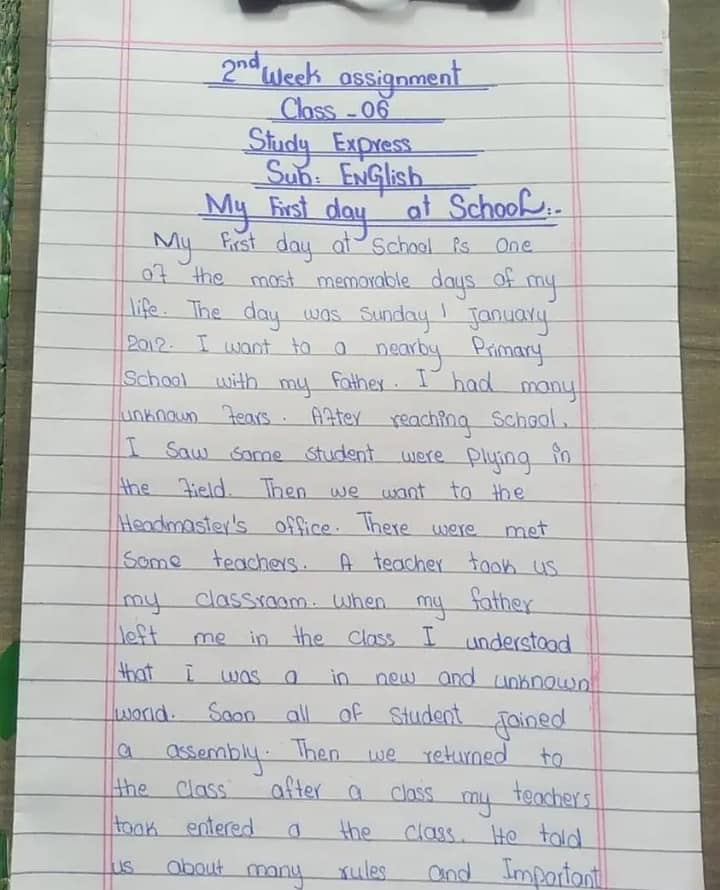 2nd Week assignment
Class - 06
Study Express
Sub: ENGlish
My First day at School:-
My First day at School is One
of the most memorable days of my
life. The day was Sunday 1 January
2012. I want to a nearby Primary
School with my Father. I had many
unknown fears. After reaching School,
I Saw some student were Plying in
the field. Then we want to the
Headmaster's office. There were met
Some teachers. A teacher took us
my classroom. when my father
left me in the Class I understood
that i was a in new and unknown
world. Soon all of Student Joined
a assembly. Then we returned to
the Class after a class my teachers
took entered a the class. He told
us about many rules and Important